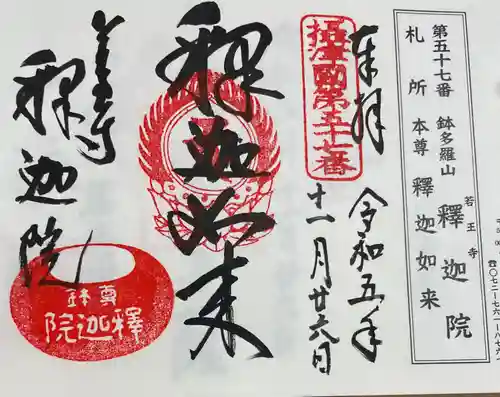 第五十七番 鉢多羅山 若王寺 釋迦院
札所本尊 釋迦如来
奉拝
令和五年
摂津國第五十七番
十一月廿六日
釋迦如来
若王寺
釋迦院
尊鉢
釋迦院